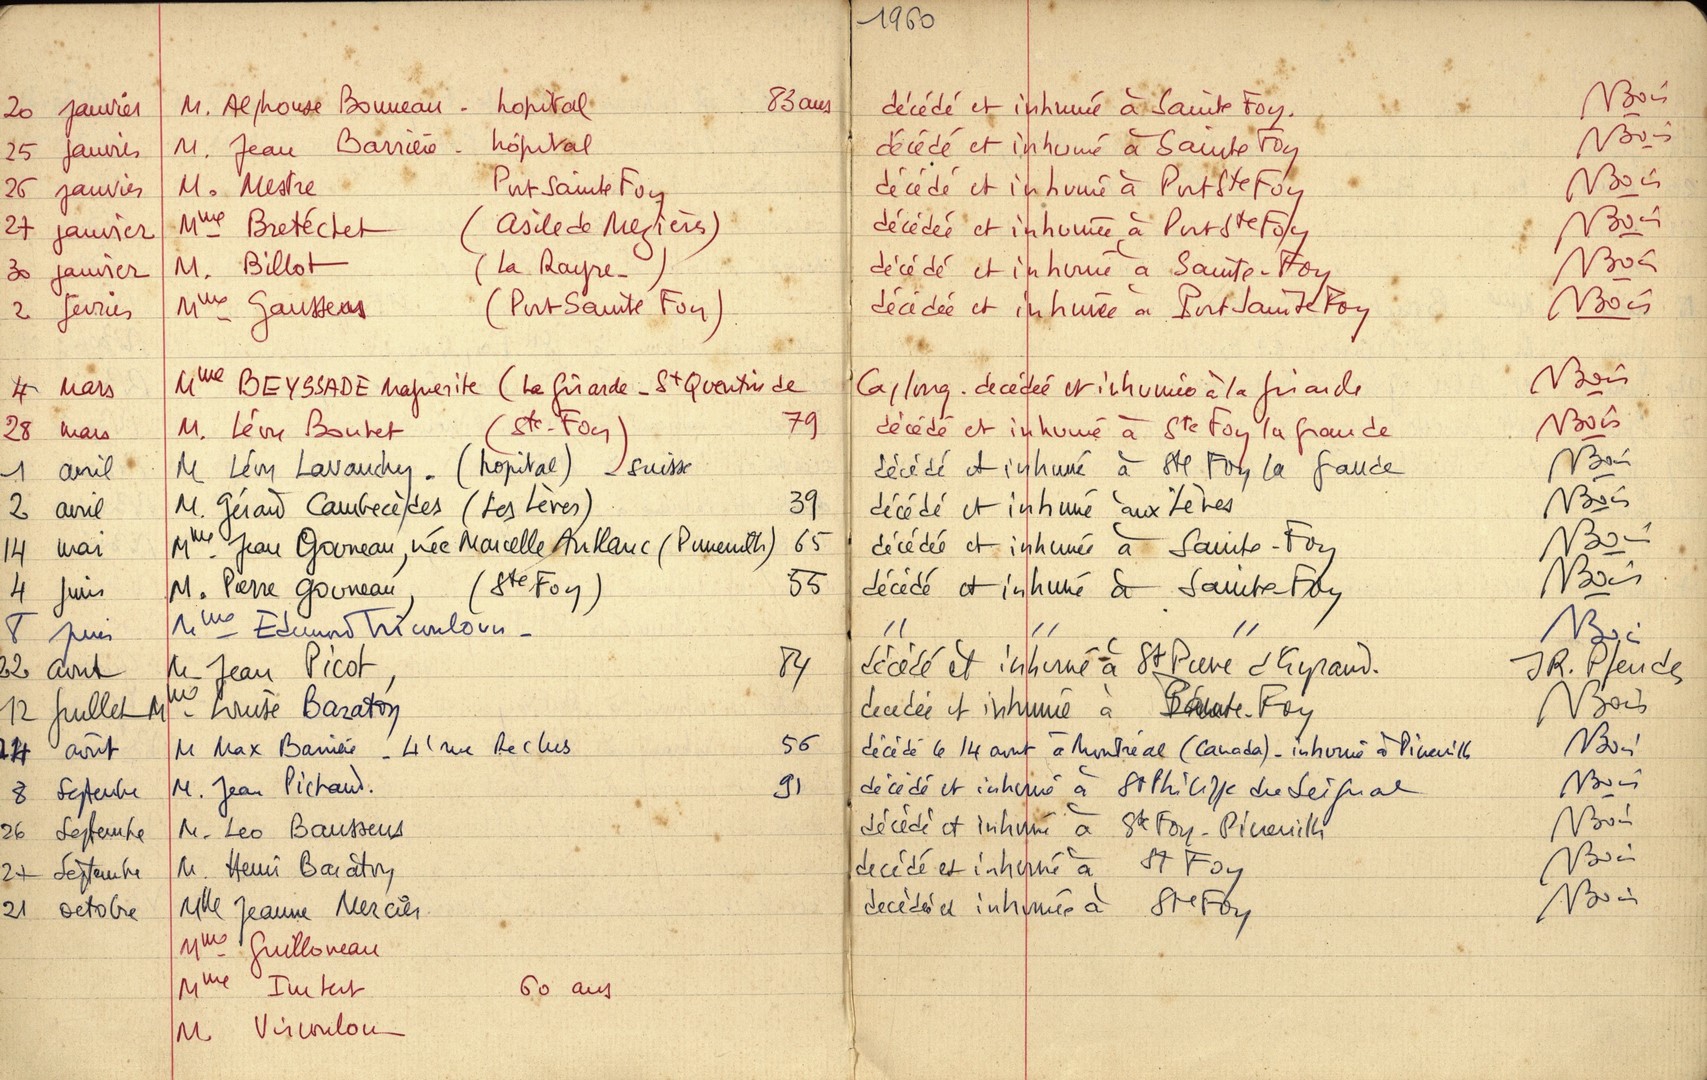 1960
20 janvier M. Alphonse Bonneau - hopital 83 ans décédé et inhumé à Sainte Foy. Bois
25 janvier M. Jean Barrière - hôpital décédé et inhumé à Sainte Foy Bois
26 janvier M. Mestre Port Sainte Foy décédé et inhumé à Port Ste Foy Bois
27 janvier Mme Bretéchet (Asile de Mezières) décédée et inhumée à Port Ste Foy Bois
30 janvier M. Billot (La Rayre-) décédé et inhumé à Sainte-Foy Bois
2 février Mme Gaussens (Port Sainte Foy) décédée et inhumée à Port Sainte Foy Bois
4 mars Mme BEYSSADE Marguerite (La Girarde - St Quentin de Caplong - decédée et inhumée à la Girarde Bois
28 mars M. Lévy Boutet (Ste-Foy) 79 décédé et inhumé à Ste Foy la Grande Bois
1 avril M Lévy Lavanchy - (hopital) - Suisse décédé et inhumé à Ste Foy la Grande Bois
2 avril M. Gérard Cambecèdes (Les Lèves) 39 décédé et inhumé aux Lèves Bois
14 mai Mme Jean Gouneau, née Marcelle Anllanc (Pineuilh) 65 décédée et inhumée à Sainte-Foy Bois
4 juin M. Pierre Gouneau, (Ste Foy) 55 décédé et inhumé à Sainte-Foy Bois
8 juin Mme Edmond - " " " Bois
22 aout M. Jean Picot, 84 décédé et inhumé à St Pierre d'Eyraud. JR. Pfender
12 juillet Mme Louise Baraton decedée et inhumée à Sainte-Foy Bois
24 août M Max Barrière - 41 rue Reclus 56 décédé le 14 aout à Montréal (Canada) - inhumé à Pineuilh Bois
8 Septembre M. Jean Pichaud. 91 décédé et inhumé à St Philippe du Seignal Bois
26 Septembre M. Leo Baussens décédé et inhumé à Ste Foy - Pineuilh Bois
27 Septembre M. Henri Baraton decédé et inhumé à St Foy Bois
21 octobre Mlle Jeanne Mercier decédée et inhumée à Ste Foy Bois
Mme Guilloneau
Mme Imbert 60 ans
M.